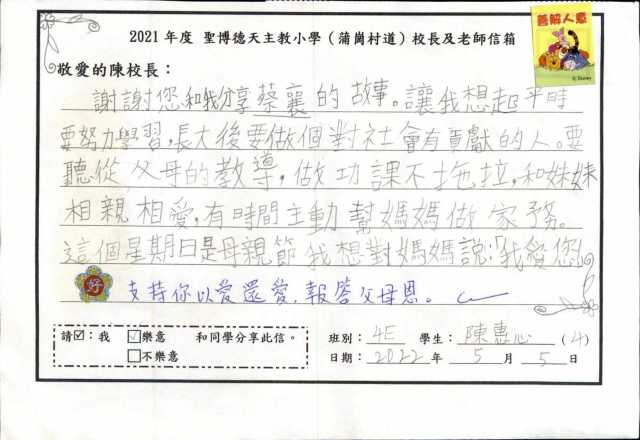 2021 年度 聖博德天主教小學（蒲崗村道）校長及老師信箱
善解人意
© Disney
敬愛的陳校長：
謝謝您和我分享蔡襄的故事。讓我想起平時
要努力學習,長大後要做個對社會有貢獻的人。要
聽從父母的教導,做功課不拖拉,和妹妹
相親相愛,有時間主動幫媽媽做家務。
這個星期日是母親節我想對媽媽說:「我愛您」
好 支持你以愛還愛,報答父母恩。
請☑：我 ☑樂意 和同學分享此信。
☐不樂意
班別： 4E 學生： 陳惠心 (4)
日期： 2022 年 5 月 5 日